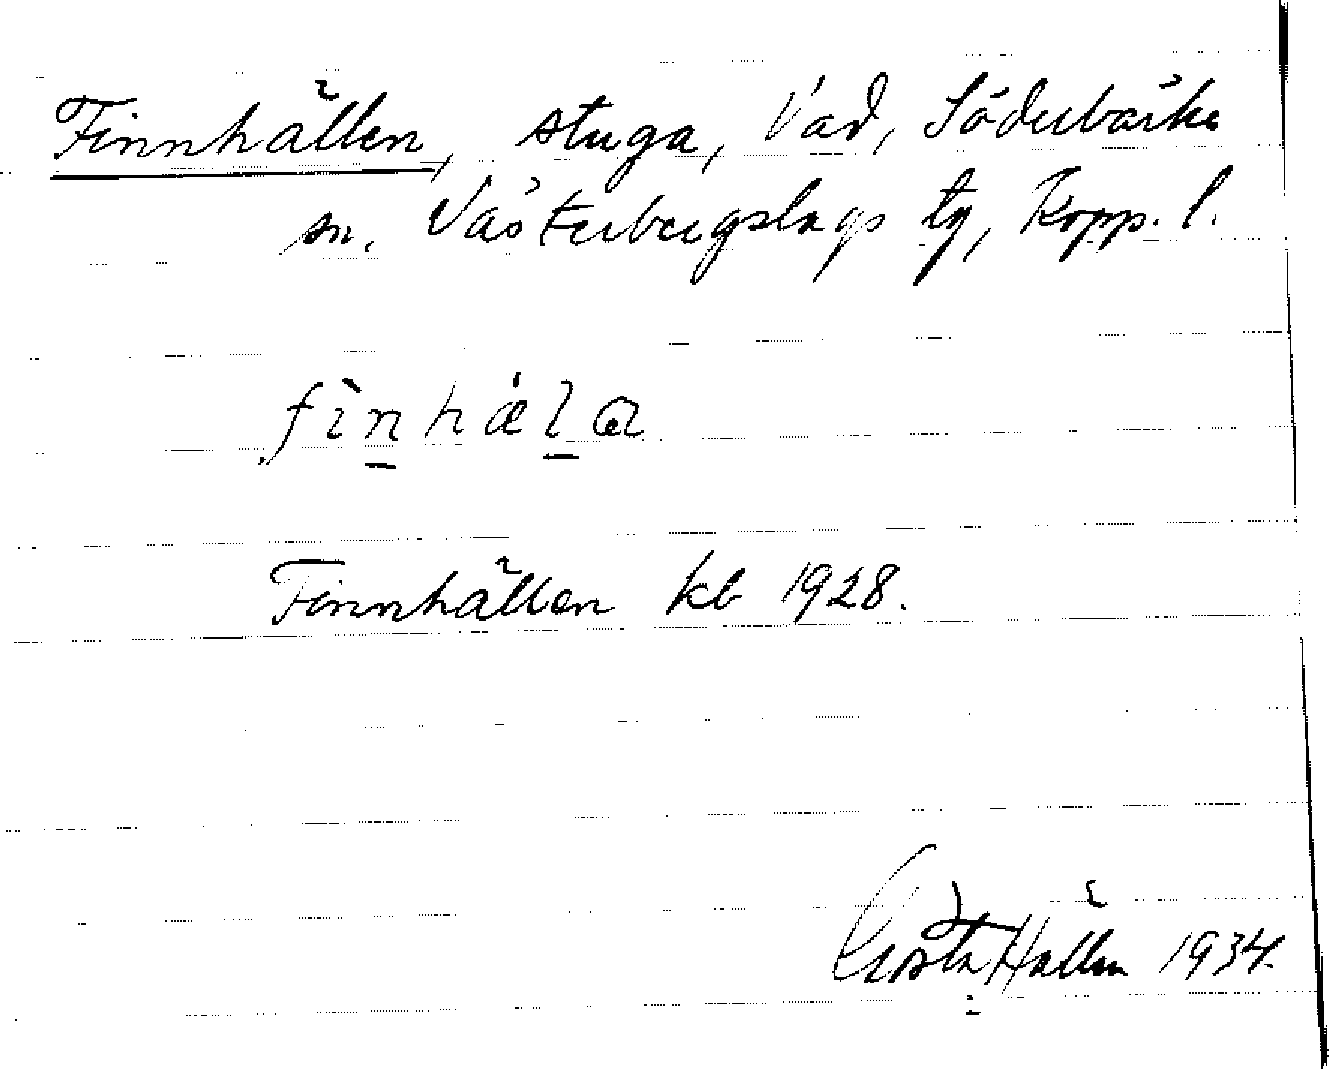 Finnhällen, stuga, Vad, Söderbärke
sn. Västerbergslags tg, Kopp. l.
fìn̲hǽl̲a
Finnhällen kb 1928.
Gösta Hallén 1934.